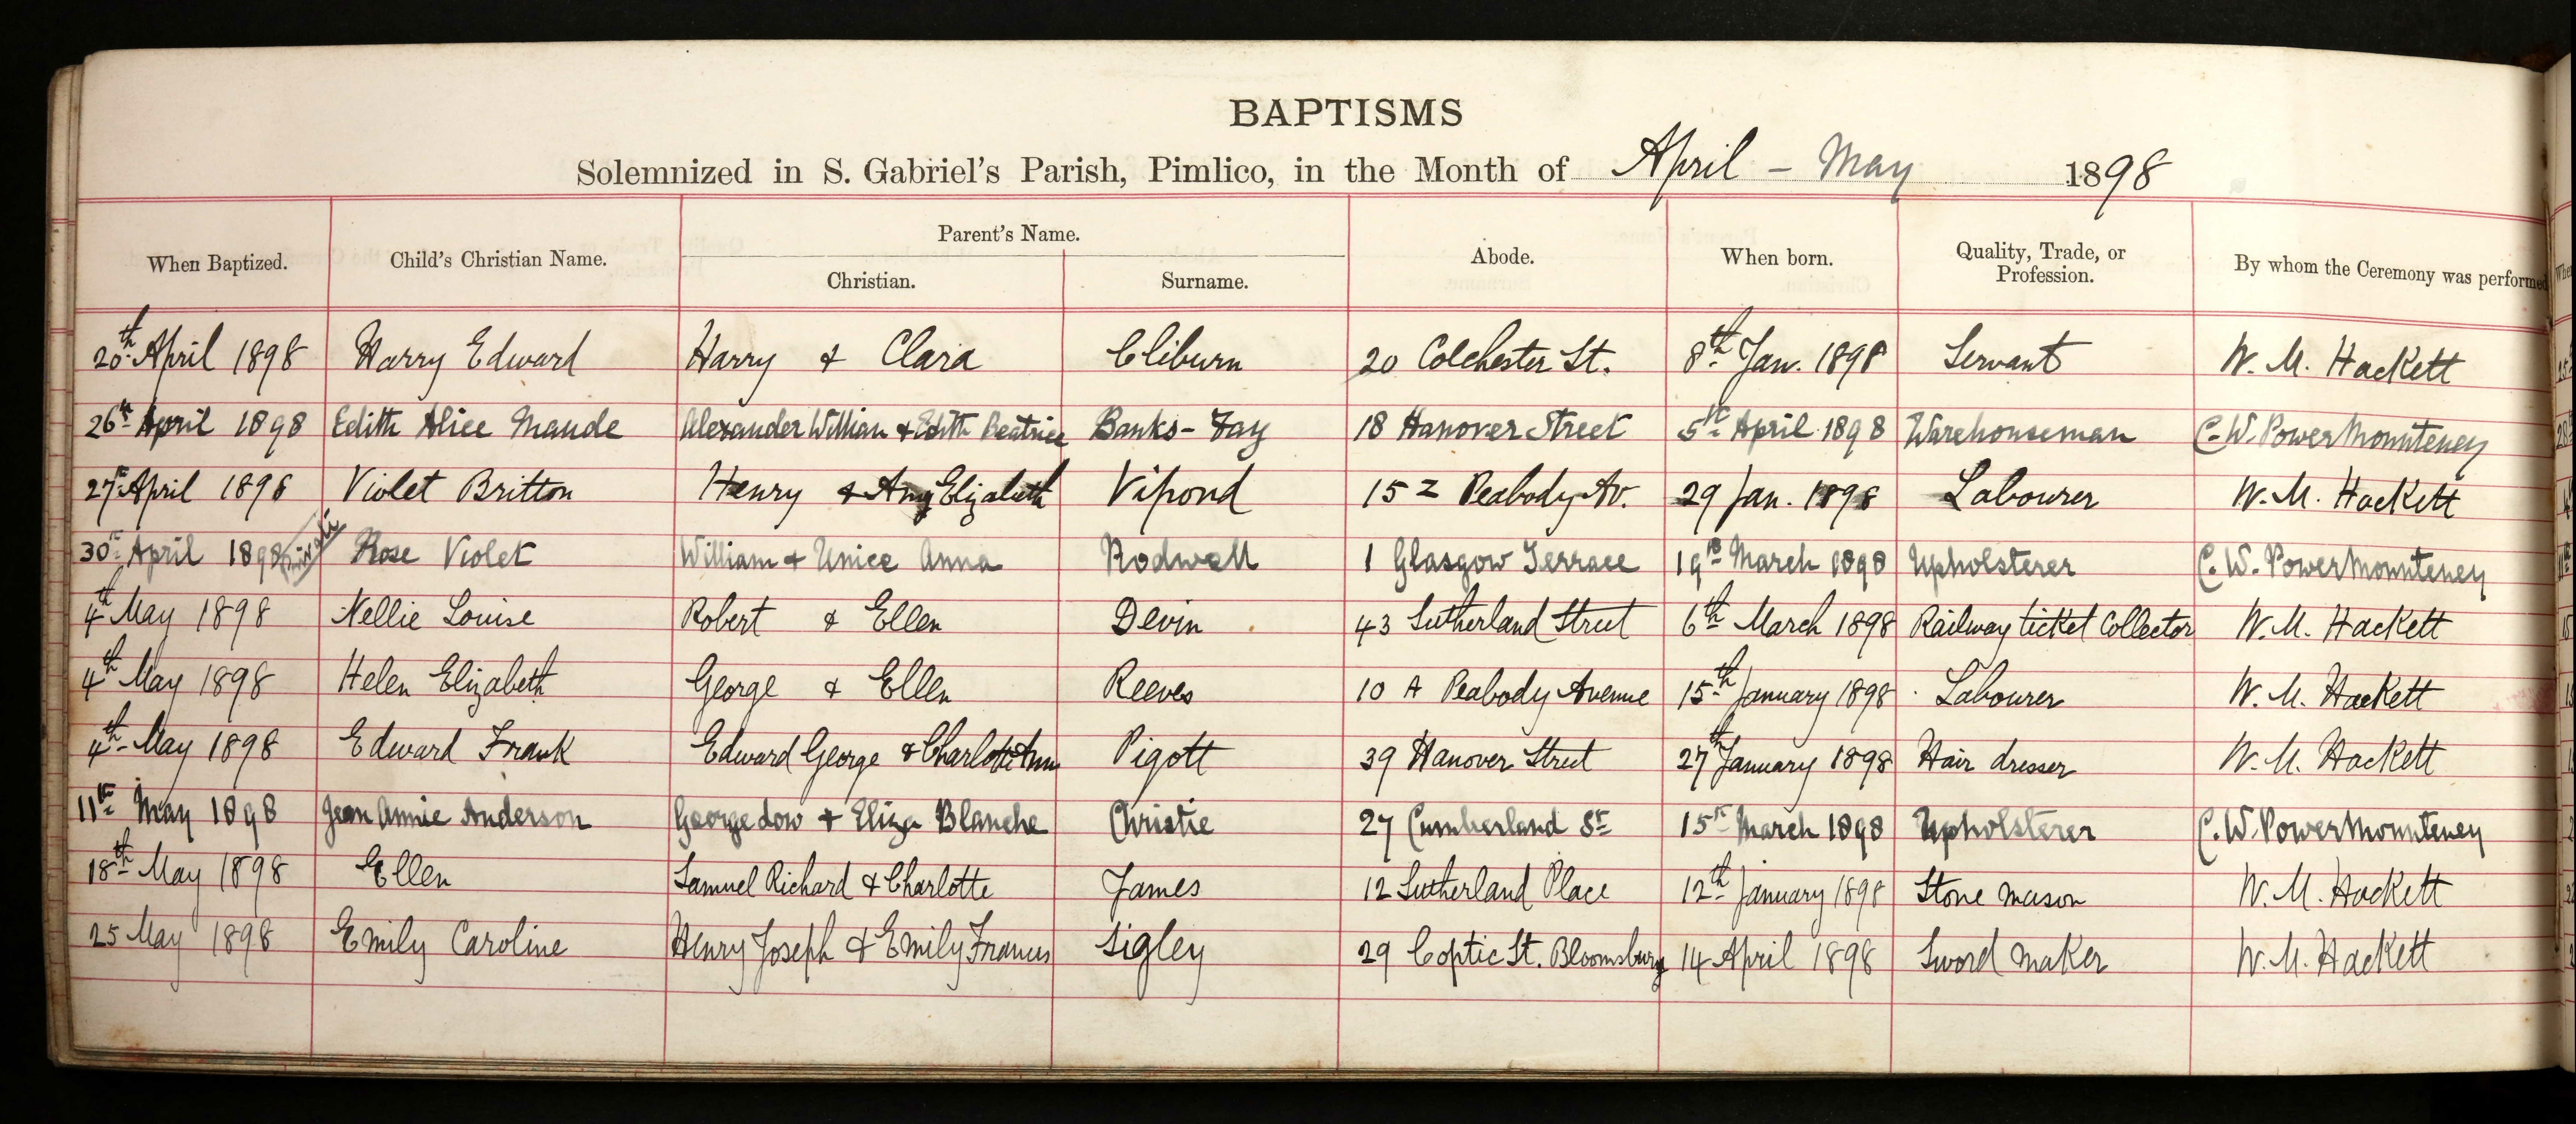 BAPTISMS
Solemnized in S. Gabriel's Parish, Pimlico, in the Month of April - May 1898
When Baptized. Child's Christian Name. Parent's Name. Christian. Surname. Abode. When born. Quality, Trade, or Profession. By whom the Ceremony was performed
20th April 1898 Harry Edward Harry & Clara Cliburn 20 Colchester St. 8th Jan. 1898 Servant W. M. Hackett
26th April 1898 Edith Alice Maude Alexander William & Edith Beatrice Banks-Fay 18 Hanover Street 5th April 1898 Warehouseman C. W. Power Mounteney
27th April 1898 Violet Britton Henry & Amy Elizabeth Vipond 15 Z Peabody Av. 29 Jan. 1898 Labourer W. M. Hackett
30th April 1898 Rose Violet William & Unice Anna Rodwell 1 Glasgow Terrace 19th March 1898 Upholsterer C. W. Power Mounteney
4th May 1898 Nellie Louise Robert & Ellen Devin 43 Sutherland Street 6th March 1898 Railway ticket Collector W. M. Hackett
4th May 1898 Helen Elizabeth George & Ellen Reeves 10 A Peabody Avenue 15th January 1898 Labourer W. M. Hackett
4th May 1898 Edward Frank Edward George & Charlotte Ann Pigott 39 Hanover Street 27th January 1898 Hair dresser W. M. Hackett
11th May 1898 Jean Annie Anderson George dow & Eliza Blanche Christie 27 Cumberland St 15th March 1898 Upholsterer C. W. Power Mounteney
18th May 1898 Ellen Samuel Richard & Charlotte James 12 Sutherland Place 12th January 1898 Stone mason W. M. Hackett
25 May 1898 Emily Caroline Henry Joseph & Emily Frances Sigley 29 Coptic St. Bloomsbury 14 April 1898 Sword maker W. M. Hackett